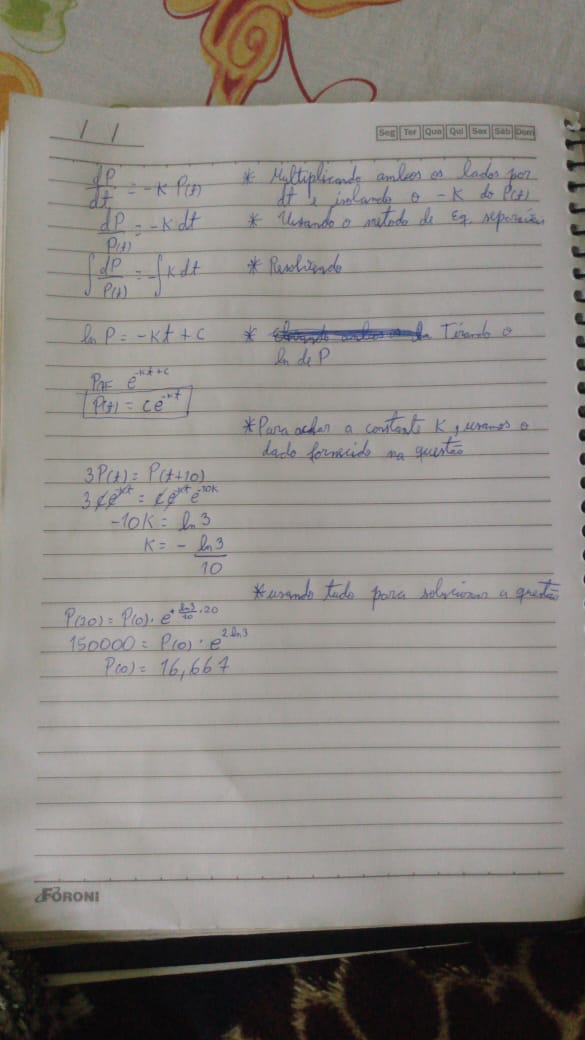 / /
Seg Ter Qua Qui Sex Sáb Dom
dP/dt = -K P(t) * Multiplicando ambos os lados por
dt e isolando o -K do P(t)
dP/P(t) = -K dt * Usando o metodo de Eq. separáveis
∫ dP/P(t) = -∫ K dt * Resolvendo
ln P = -Kt + c * Tirando o
ln de P
P(t)= e^(-Kt+c)
P(t) = ce^(-Kt)
*Para achar a constante K, usamos o
dado fornecido na questão
3P(t) = P(t+10)
3ce^(-Kt) = ce^(-Kt) e^(-10K)
-10K = ln 3
K = - ln 3/10
*usando tudo para solucionar a questão
P(20) = P(0) · e^(+ ln3/10 · 20)
150000 = P(0) · e^(2 ln 3)
P(0) = 16,667
FORONI